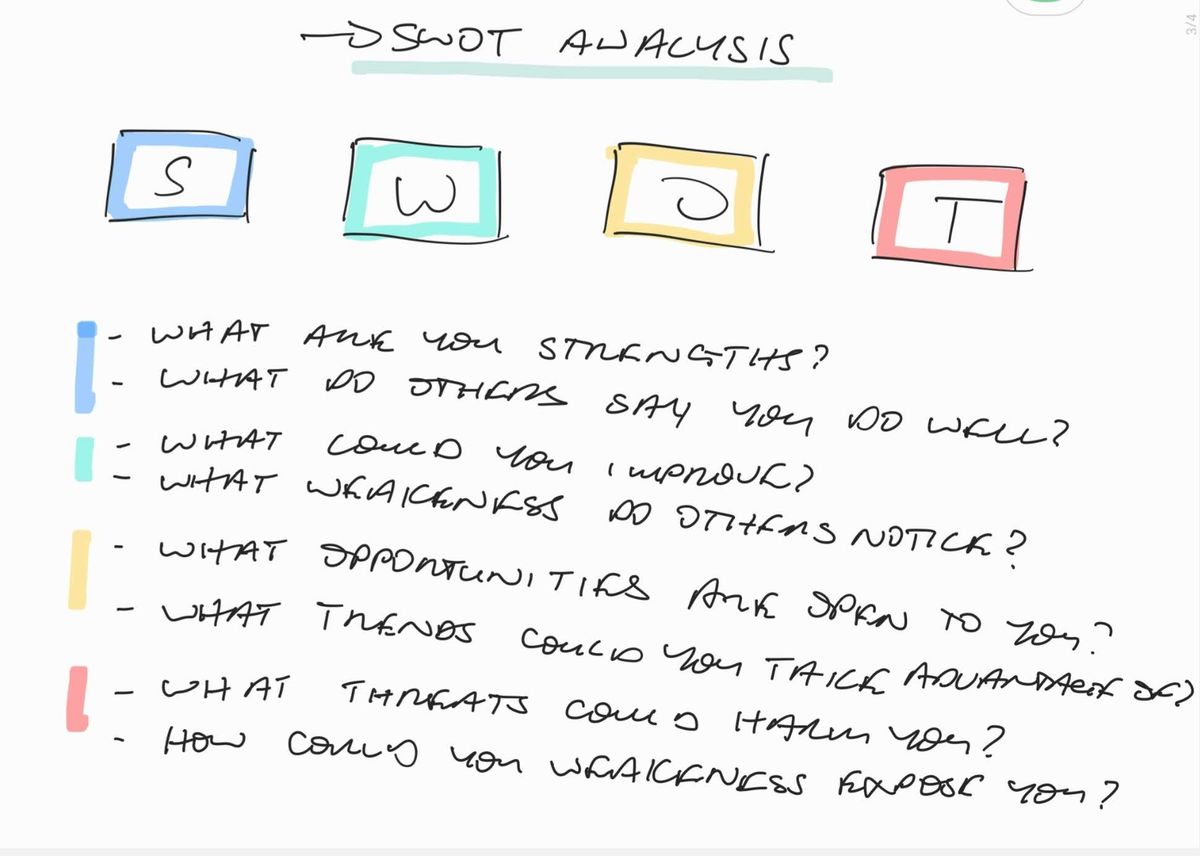 → SWOT ANALYSIS
3/4
S W O T
- WHAT ARE YOU STRENGTHS?
- WHAT DO OTHERS SAY YOU DO WELL?
- WHAT COULD YOU IMPROVE?
- WHAT WEAKENESS DO OTHERS NOTICE?
- WHAT OPPORTUNITIES ARE OPEN TO YOU?
- WHAT TRENDS COULD YOU TAKE ADVANTAGE OF?
- WHAT THREATS COULD HARM YOU?
- HOW COULD YOU WEAKENESS EXPOSE YOU?